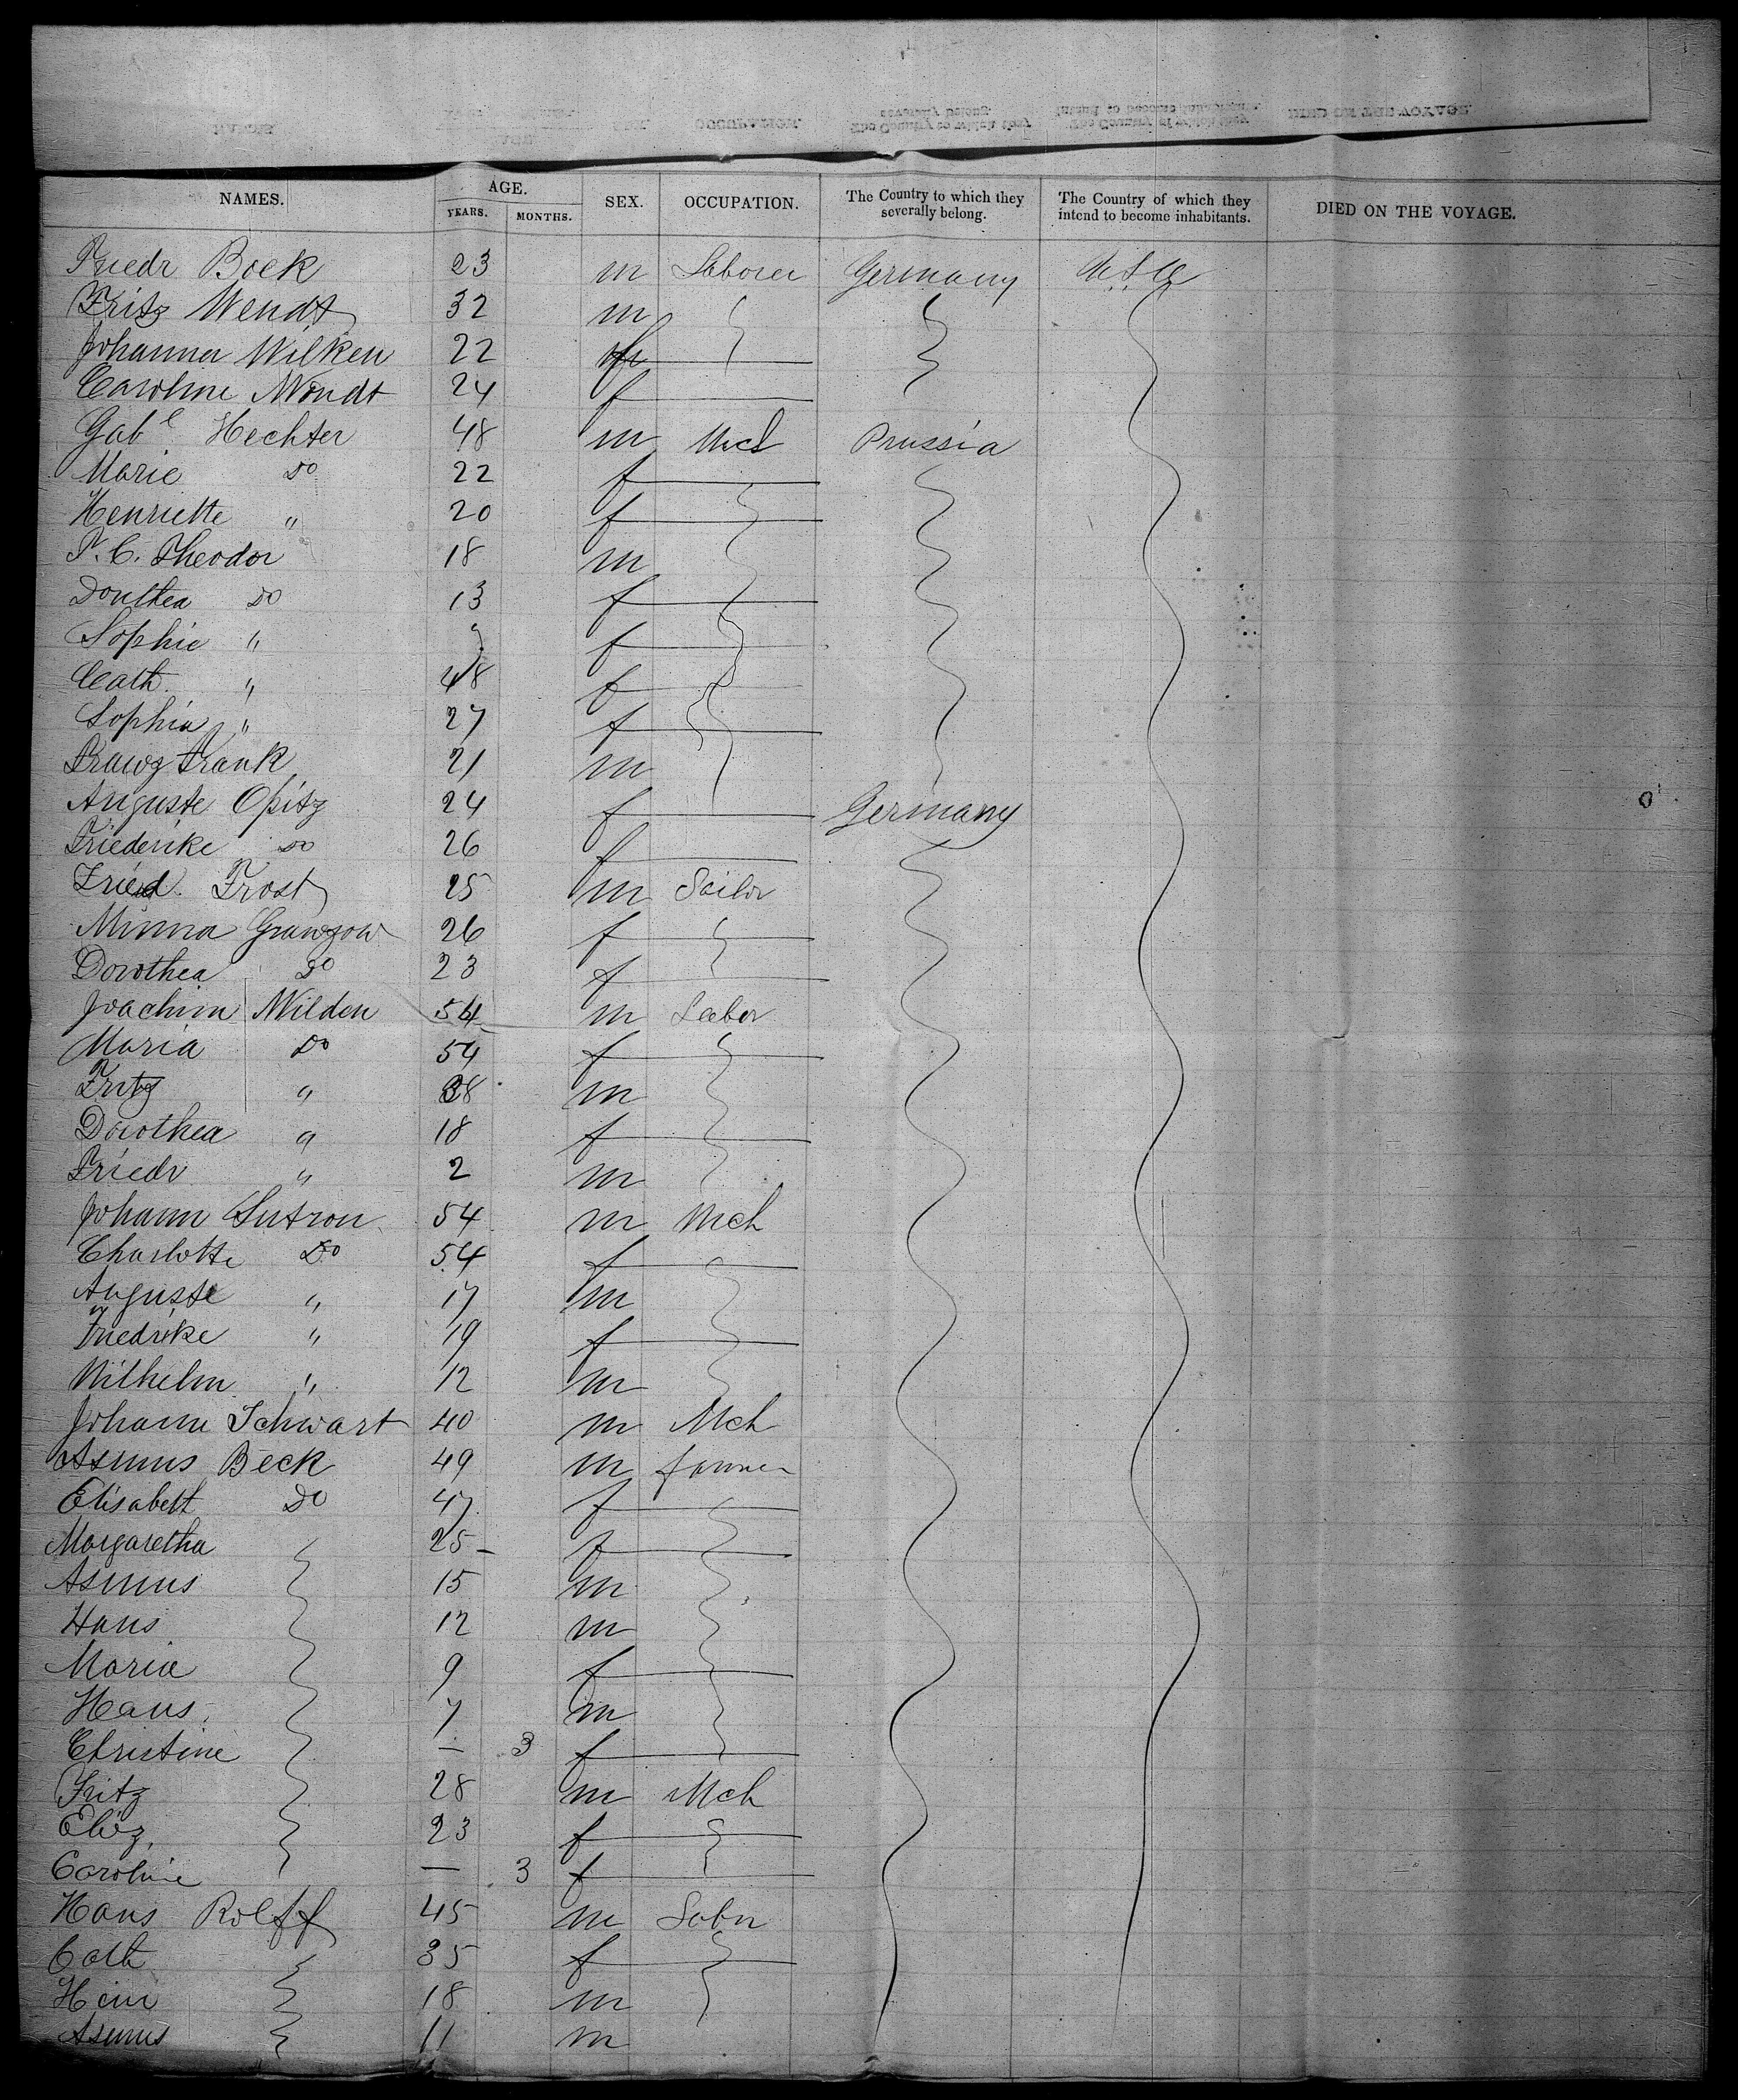 NAMES. AGE. YEARS. MONTHS. SEX. OCCUPATION. The Country to which they severally belong. The Country of which they intend to become inhabitants. DIED ON THE VOYAGE.
Friedr Boek 23 m Laborer Germany
Fritz Wendt 32 m
Johanna Wilken 22
Caroline Wendt 24 f
Gab l Hechter 48 m Mch Prussia
Marie Do 22 f
Henriette " 20 f
F. C. Theodor 18 m
Dorithea Do 13 f
Sophie " f
Cath. " 48 f
Sophia " 27 f
Franz Frank 21 m
Auguste Opitz 24 f Germany
Friederike Do 26 f
Fried. Frost 25 m Sailor
Minna Grawzow 26 f
Dorothea Do 23 f
Joachim Wilden 54 m Labor
Maria Do 54 f
Fritz " 38 m
Dorothea " 18 f
Friedr " 2 m
Johann Sutron 54 m Mch
Charlotte Do 54 f
Auguste " 17 m
Friedrike " 19 f
Wilhelm " 12 m
Johann Schwart 40 m Mch
Asmus Beck 49 m farmer
Elisabett Do 47 f
Margaretha 25 f
Asmus 15 m
Hans 12 m
Maria 9 f
Hans 7 m
Christine — 3 f
Fritz 28 m Mch
Eliz. 23 f
Caroline — 3 f
Hans Rolff 45 m Labr
Cath 35 f
Hein 18 m
Asmus 11 m